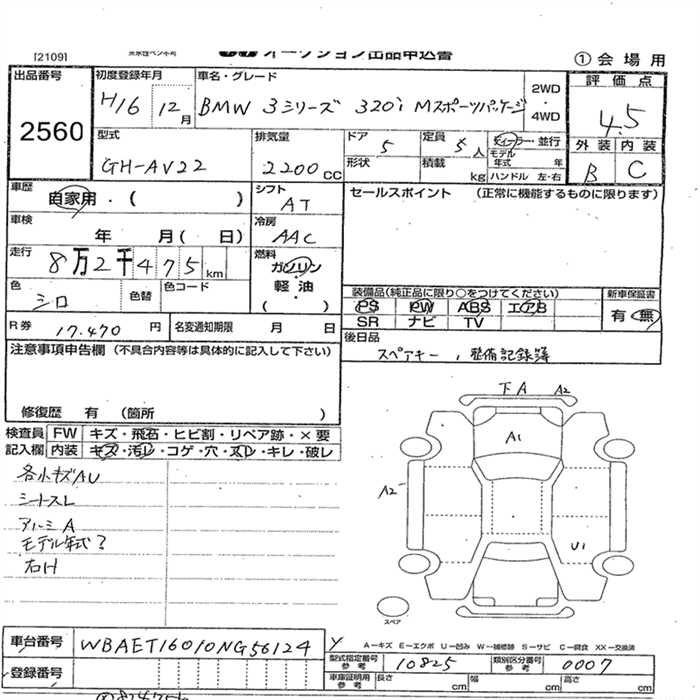 [2109]
オークション出品申込書
① 会場用
出品番号
2560
初度登録年月
H16 12月
車名・グレード
BMW 3シリーズ 320i Mスポーツパッケージ
2WD・4WD
評価点
4.5
外装 内装
B C
型式
GH-AV22
排気量
2200 CC
ドア 5
形状
定員 5人
積載 kg
ディーラー・並行
モデル年式 年
ハンドル 左・右
車歴
自家用・( )
シフト
AT
セールスポイント (正常に機能するものに限ります)
車検
年 月( 日)
冷房
AAC
走行
8万2千475km
燃料
ガソリン・軽油・( )
色
シロ
色替
色コード
装備品(純正品に限り○をつけてください)
PS PW ABS エアB
SR ナビ TV
新車保証書
有・無
R券 17.470円
名変通知期限 月 日
後日品
スペアキー, 整備記録簿
注意事項申告欄 (不具合内容等は具体的に記入して下さい)
修復歴 有 (箇所 )
検査員記入欄
FW キズ・飛石・ヒビ割・リペア跡・×要
内装 キズ・汚レ・コゲ・穴・スレ・キレ・破レ
各小キズAU
シートスレ
アルミA
モデル年式?
右H
下A A2
A1
A2
U1
スペア
車台番号 WBAET16010NG56124
登録番号
A−キズ E−エクボ U−凹み W−補修跡 S−サビ C−腐食 XX−交換済
型式指定番号参考 10825
類別区分番号参考 0007
車庫証明用参考 長さ cm 幅 cm 高さ cm